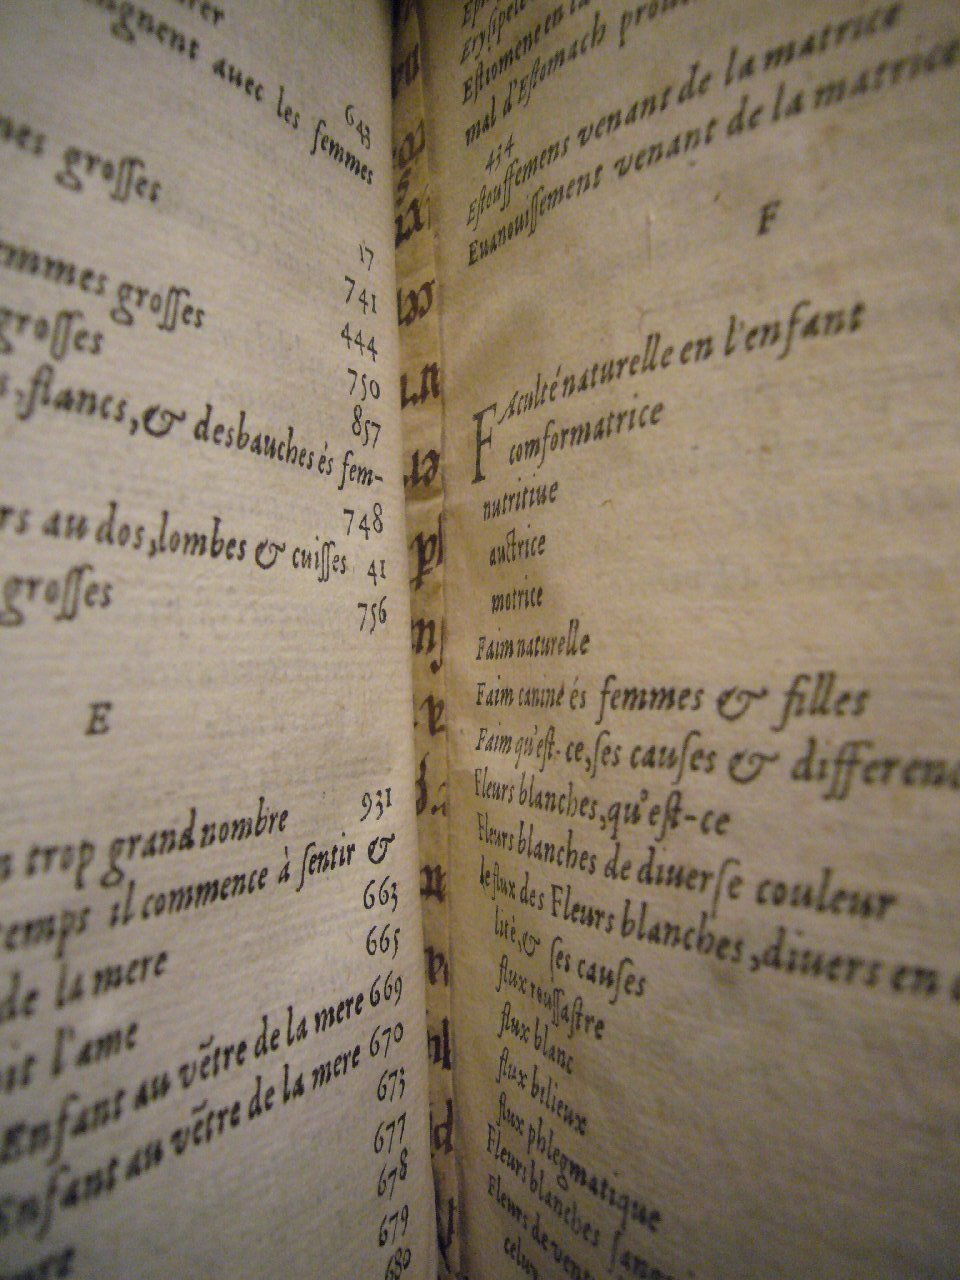 avec les femmes
643
grosses
17
femmes grosses 741
grosses 444
750
857
flancs, & desbauches és fem-
748
au dos, lombes & cuisses 41
grosses 756
E
trop grand nombre 931
temps il commence à sentir &
663
de la mere 665
l'ame
Enfant au vẽtre de la mere 669
Enfant au vẽtre de la mere 670
673
677
678
679
680
mal d'Estomach
434
Estouffemens venant de la matrice
Euanouissement venant de la matrice
F
FAculté naturelle en l'enfant
comformatrice
nutritiue
auctrice
motrice
Faim naturelle
Faim canine és femmes & filles
Faim qu'est-ce, ses causes &
Fleurs blanches, qu'est-ce
Fleurs blanches de diuerse couleur
le flux des Fleurs blanches, diuers en
lité, & ses causes
flux roussastre
flux blanc
flux bilieux
flux phlegmatique
Fleurs blanches
Fleurs de